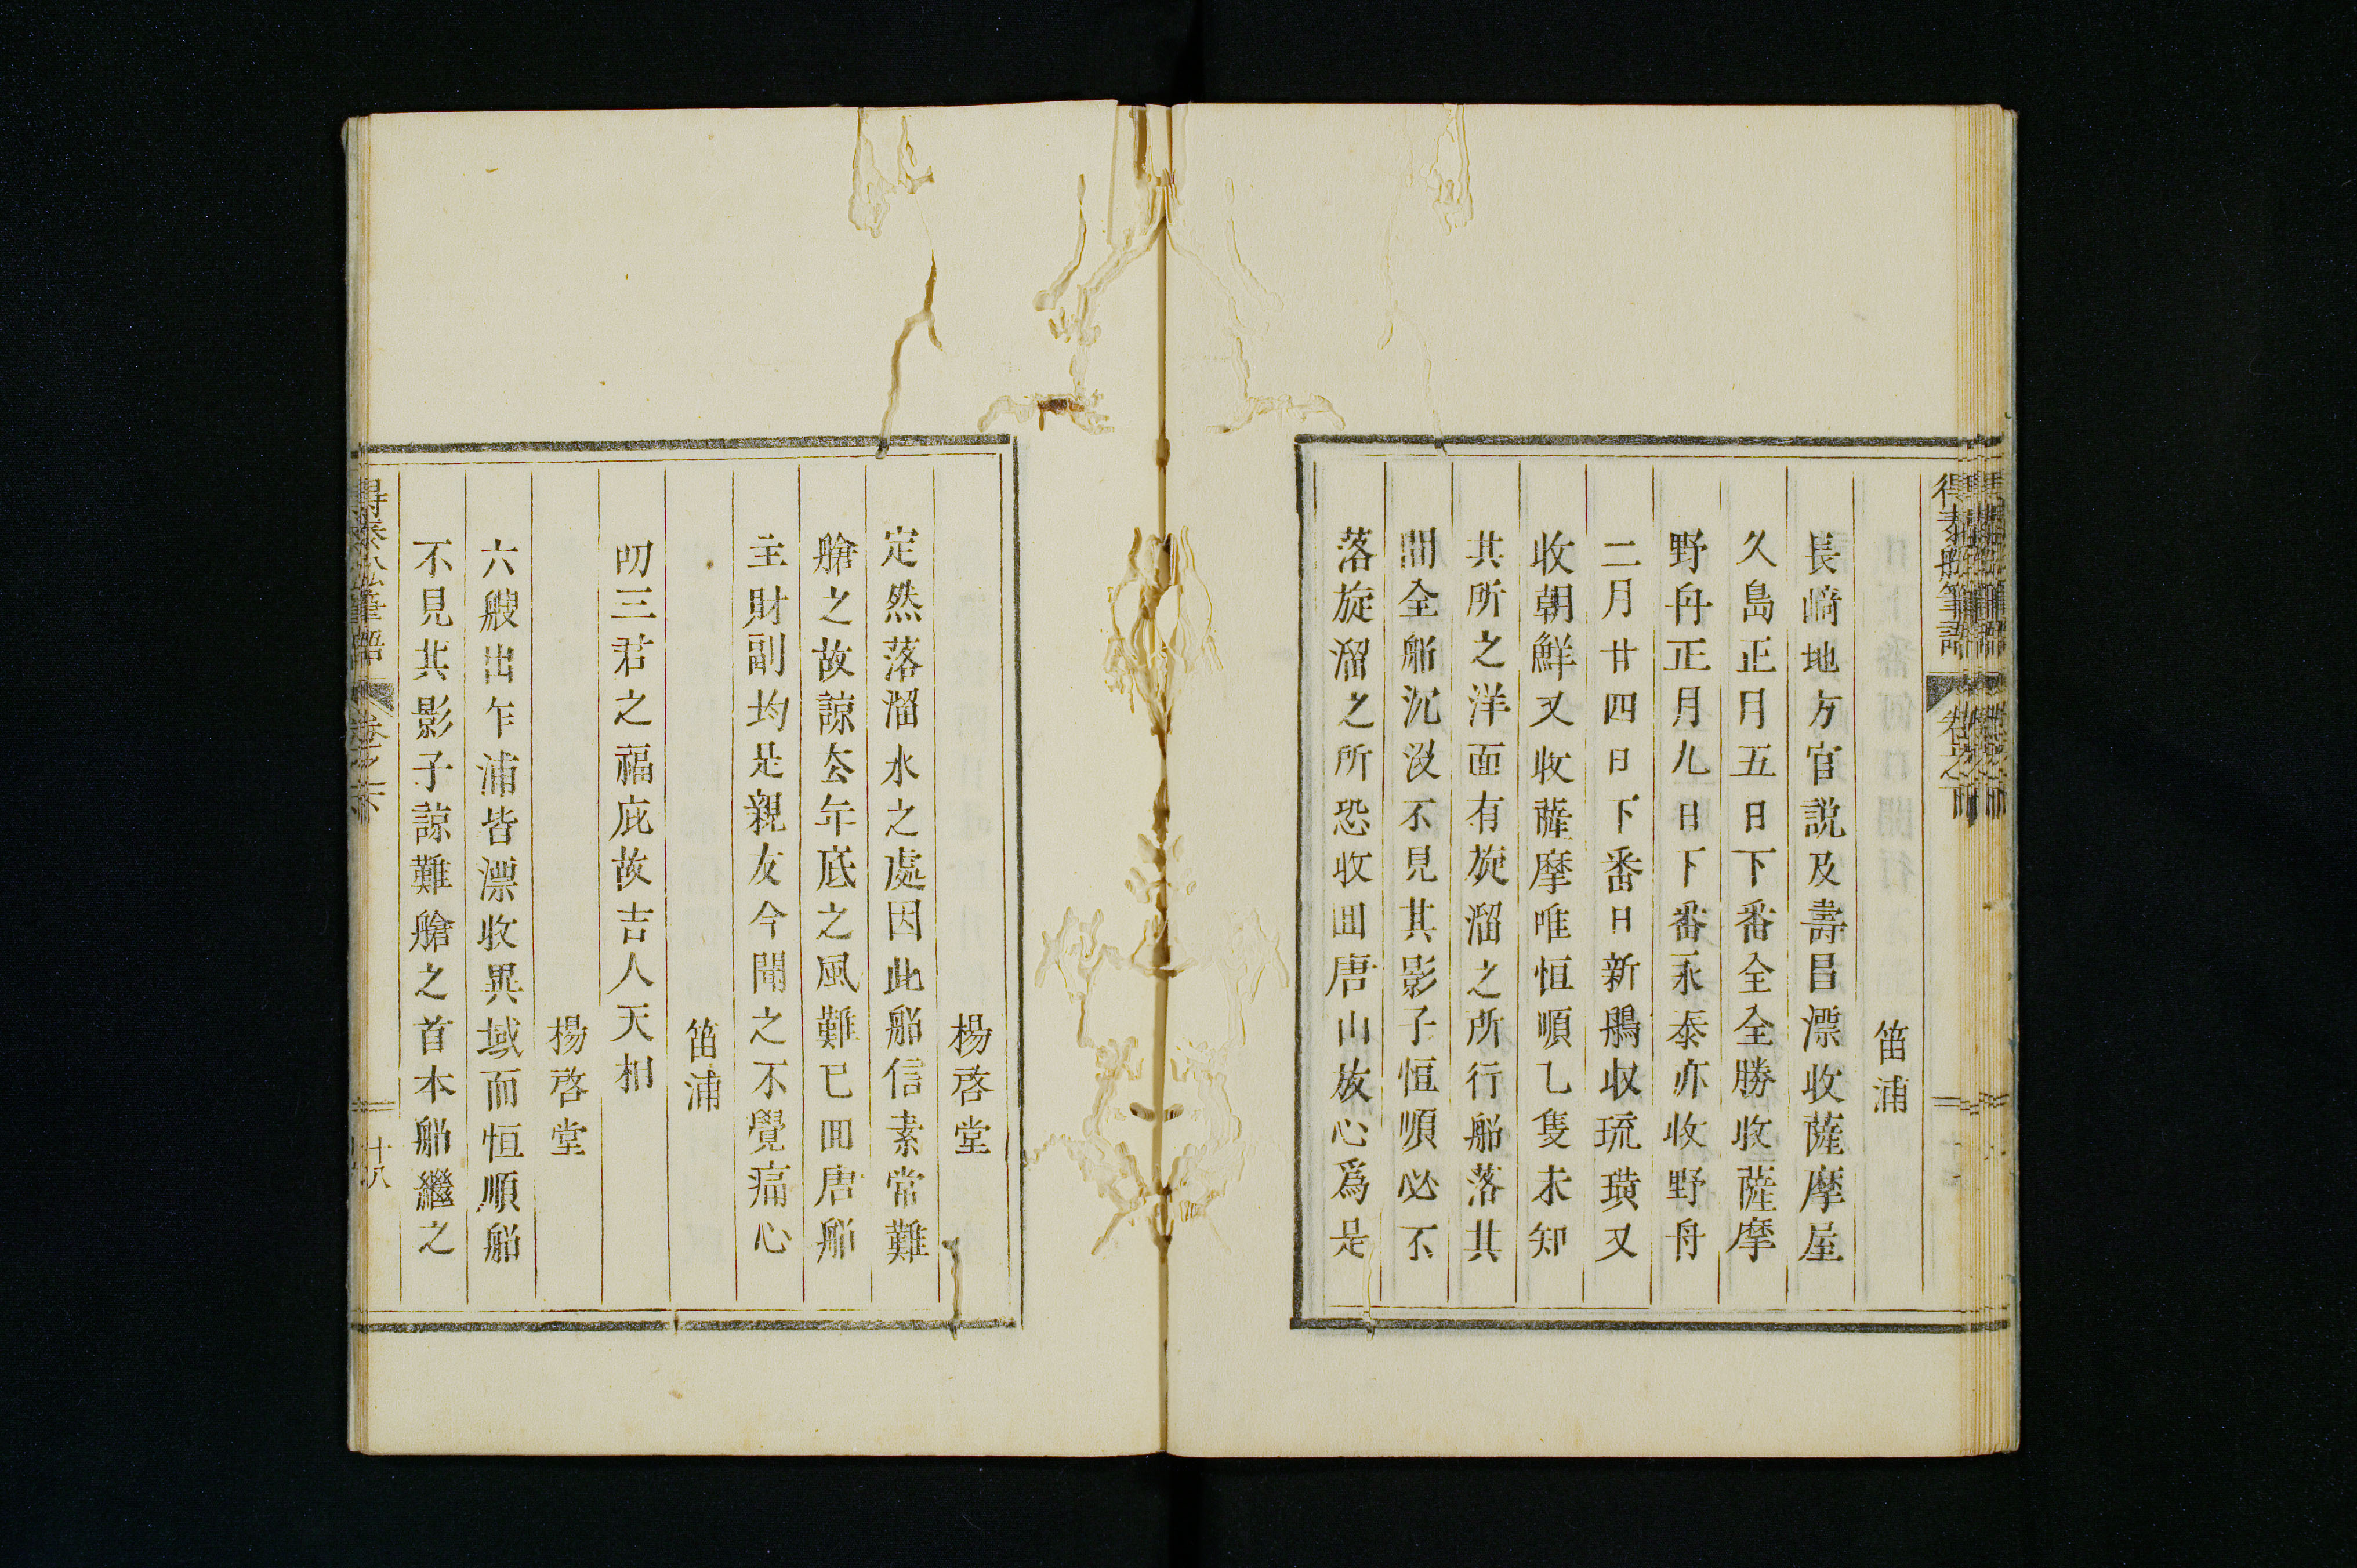 笛浦
長﨑地方官説及壽昌漂收薩摩屋
久島正月五日下番全全勝收薩摩
野舟正月九日下番永泰亦收野舟
二月廿四日下番日新鵰収琉璜又
收朝鮮又收薩摩唯恒順乙隻未知
其所之洋面有旋溜之所行船落其
間全船沉没不見其影子恒順必不
落旋溜之所恐收囬唐山放心爲是
楊啓堂
定然落溜水之處因此船信素常難
艙之故諒去年底之風難已囬唐船
主財副均是親友今聞之不覺痛心
笛浦
叨三君之福庇故吉人天相
楊啓堂
六艘出乍浦皆漂收異域而恒順船
不見其影子諒難艙之首本船繼之
十八